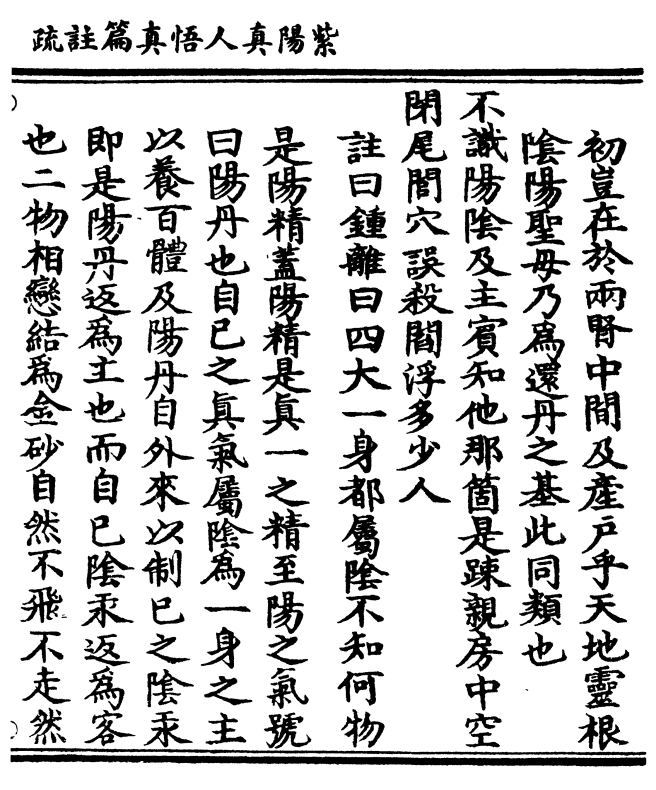 紫陽真人悟真篇註疏
初豈在於兩腎中間及產戶乎天地靈根
陰陽聖母乃爲還丹之基此同類也
不識陽陰及主賓知他那箇是踈親房中空
閉尾閭穴誤殺閻浮多少人
註曰鍾離曰四大一身都屬陰不知何物
是陽精蓋陽精是眞一之精至陽之氣號
曰陽丹也自已之眞氣屬陰爲一身之主
以養百體及陽丹自外來以制已之陰汞
即是陽丹返爲主也而自已陰汞返爲客
也二物相戀結爲金砂自然不飛不走然